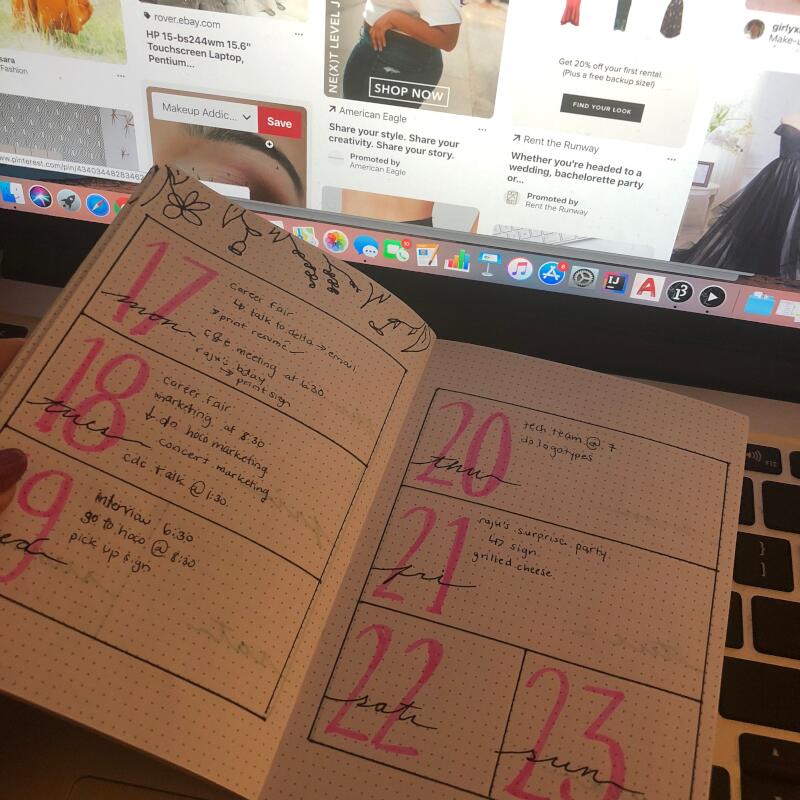 sara
Fashion
rover.ebay.com
HP 15-bs244wm 15.6"
Touchscreen Laptop,
Pentium...
NE(X)T LEVEL J
SHOP NOW
American Eagle
Share your style. Share your
creativity. Share your story.
Promoted by
American Eagle
Get 20% off your first rental.
(Plus a free backup size!)
FIND YOUR LOOK
Rent the Runway
Whether you're headed to a
wedding, bachelorette party
or...
Promoted by
Rent the Runway
girlyx
Make-u
Makeup Addic...
Save
17
mon
career fair
↳ talk to delta → email
print resume ✓
meeting at 6:30
raju's bday
→ print sign
18
tues
career fair
marketing at 8:30
↳ do hoco marketing
concert marketing
cdc talk @ 1:30
9
wed
interview 6:30
go to hoco @ 8:30
pick up sign
20
thur
tech team @ 7
do logotypes
21
fri
raju's surprise party
↳ sign
grilled cheese
22
sat
23
sun